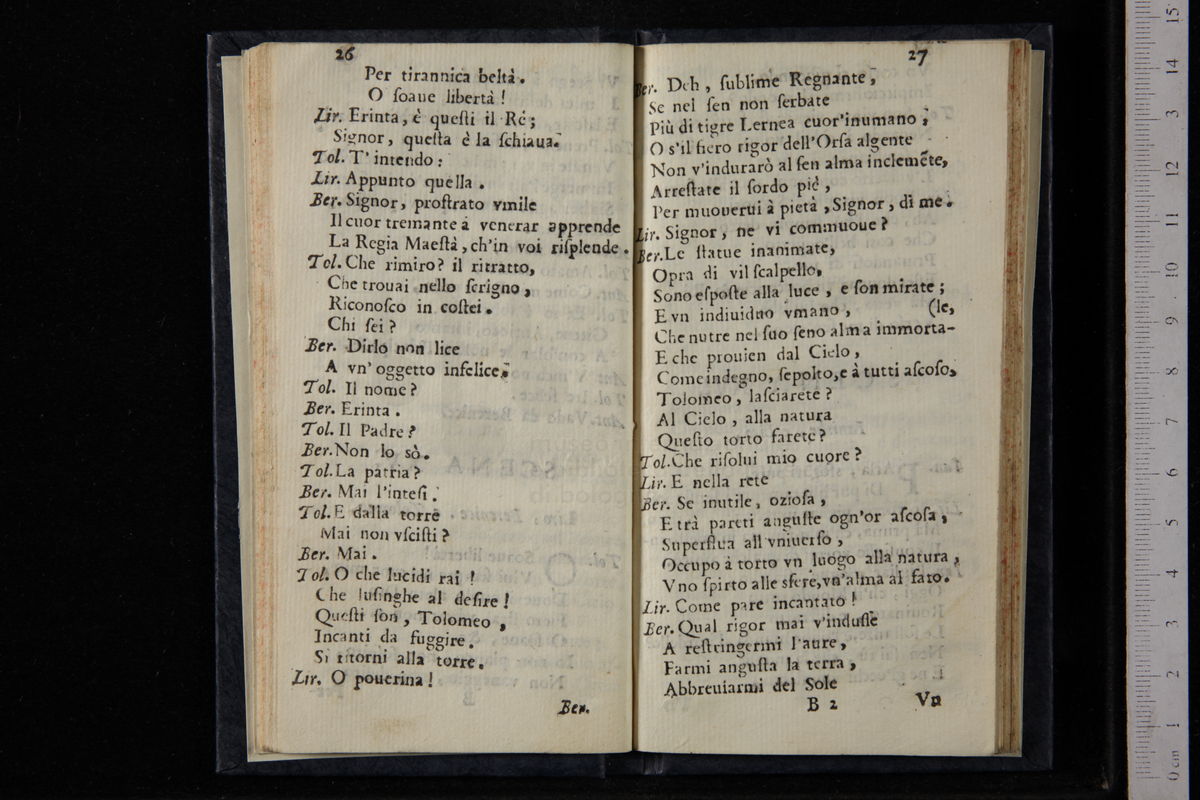 26
Per tirannica beltà.
O ſoaue libertà!
Lir. Erinta, è queſti il Ré;
Signor, queſta è la ſchiaua.
Tol. T'intendo:
Lir. Appunto quella.
Ber. Signor, proſtrato vmile
Il cuor tremante à venerar apprende
La Regia Maeſtà, ch'in voi riſplende.
Tol. Che rimiro? il ritratto,
Che trouai nello ſcrigno,
Riconoſco in coſtei.
Chi ſei?
Ber. Dirlo non lice
A vn' oggetto infelice.
Tol. Il nome?
Ber. Erinta.
Tol. Il Padre?
Ber. Non lo sò.
Tol. La patria?
Ber. Mai l'inteſi.
Tol. E dalla torre
Mai non vſciſti?
Ber. Mai.
Tol. O che lucidi rai!
Che luſinghe al deſire!
Queſti ſon, Tolomeo,
Incanti da fuggire.
Si ritorni alla torre.
Lir. O pouerina!
Ber.
27
Ber. Deh, ſublime Regnante,
Se nel ſen non ſerbate
Più di tigre Lernea cuor'inumano,
O s'il fiero rigor dell'Orſa algente
Non v'indurarò al ſen alma inclemēte,
Arreſtate il ſordo piè,
Per muouerui à pietà, Signor, di me.
Lir. Signor, ne vi commuoue?
Ber. Le ſtatue inanimate,
Opra di vil ſcalpello,
Sono eſpoſte alla luce, e ſon mirate;
E vn indiuiduo vmano, (le,
Che nutre nel ſuo ſeno alma immorta-
E che prouien dal Cielo,
Come indegno, ſepolto, e à tutti aſcoſo,
Tolomeo, laſciarete?
Al Cielo, alla natura
Queſto torto farete?
Tol. Che riſolui mio cuore?
Lir. E nella rete
Ber. Se inutile, ozioſa,
E trà pareti anguſte ogn'or aſcoſa,
Superflua all'vniuerſo,
Occupo à torto vn luogo alla natura,
Vno ſpirto alle sfere, vn'alma al fato.
Lir. Come pare incantato!
Ber. Qual rigor mai v'induſſe
A reſtringermi l'aure,
Farmi anguſta la terra,
Abbreuiarmi del Sole
B 2
Vn